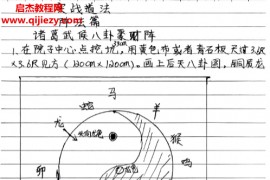 启杰教程网
www.qijie8.com
实战道法
阵法篇
诸葛武侯八卦聚财阵
1. 在院子中心点挖坑, 用黄色布或者青石板, 尺寸3.6尺
×3.6尺见方 (120cm×120cm)。画上后天八卦图, 铜质龙
马
蛇
羊
龙
猴
鸡
卯